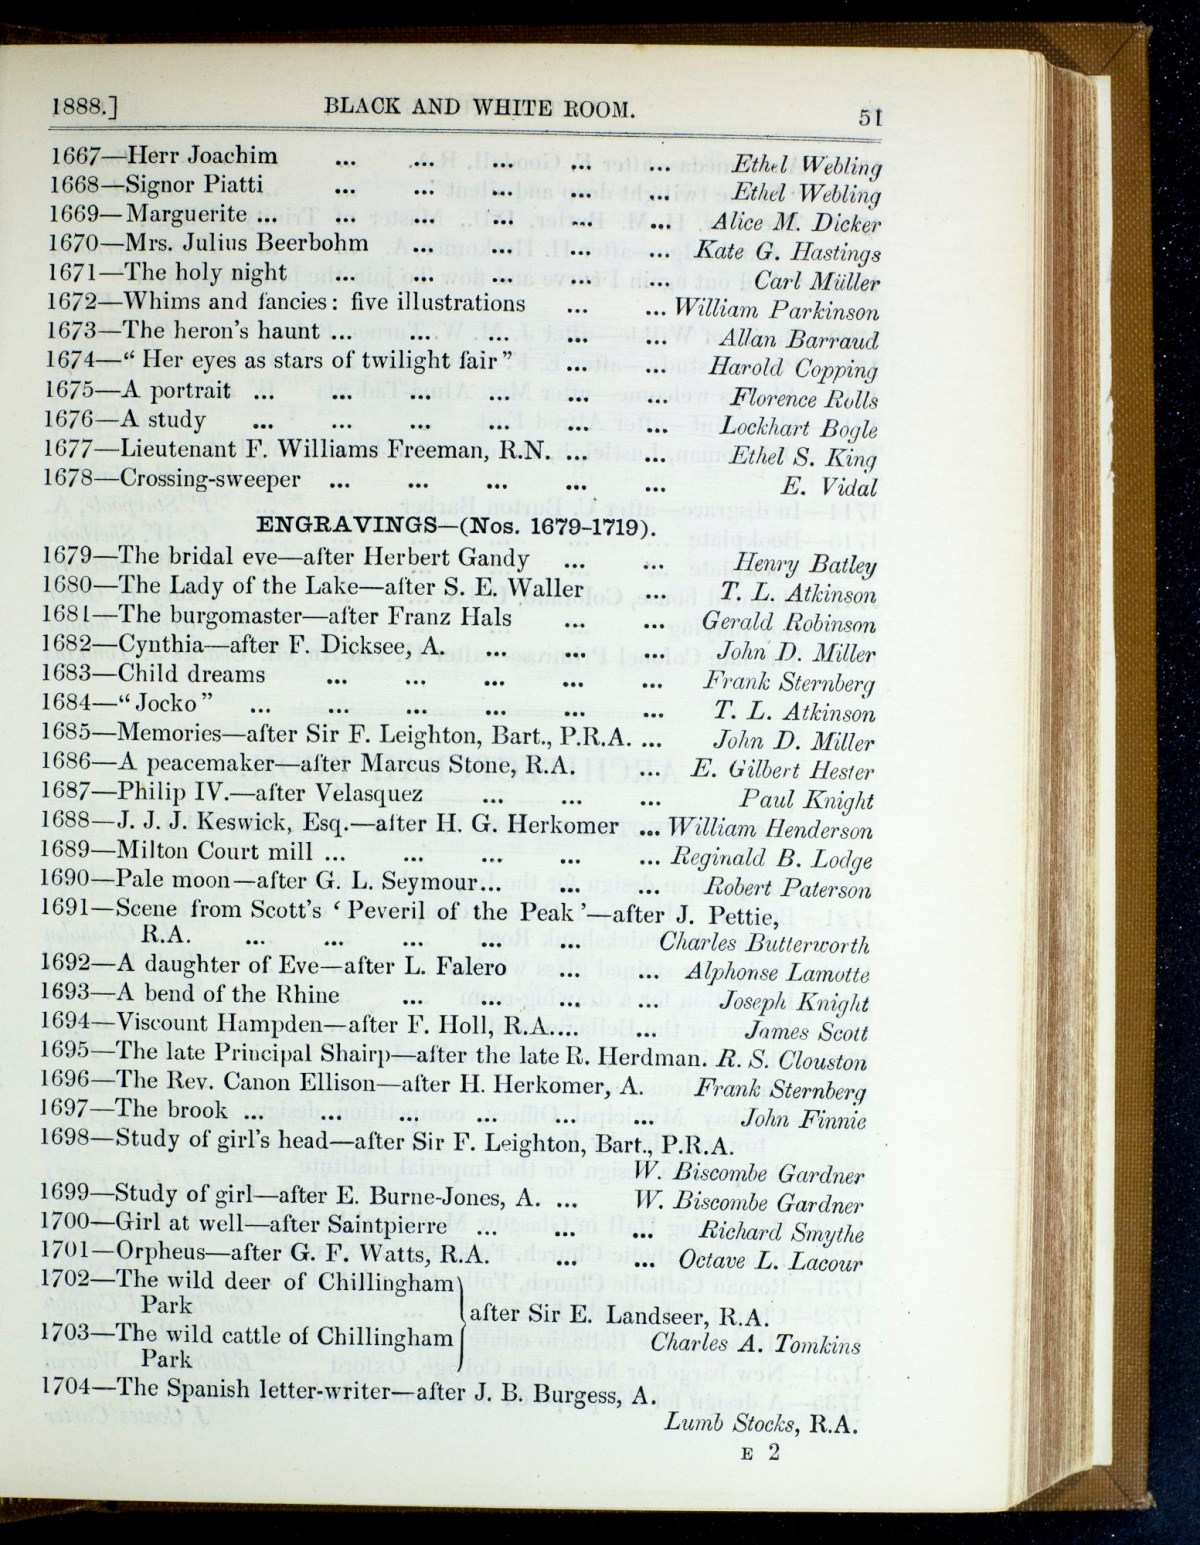 1888.] BLACK AND WHITE ROOM. 51
1667—Herr Joachim ... ... ... ... ... Ethel Webling
1668—Signor Piatti ... ... ... ... ... Ethel Webling
1669—Marguerite ... ... ... ... ... ... Alice M. Dicker
1670—Mrs. Julius Beerbohm ... ... ... ... Kate G. Hastings
1671—The holy night ... ... ... ... ... Carl Müller
1672—Whims and fancies: five illustrations ... ... William Parkinson
1673—The heron's haunt ... ... ... ... ... Allan Barraud
1674—“Her eyes as stars of twilight fair” ... ... Harold Copping
1675—A portrait ... ... ... ... ... ... Florence Rolls
1676—A study ... ... ... ... ... ... Lockhart Bogle
1677—Lieutenant F. Williams Freeman, R.N. ... ... Ethel S. King
1678—Crossing-sweeper ... ... ... ... ... E. Vidal
ENGRAVINGS—(Nos. 1679-1719).
1679—The bridal eve—after Herbert Gandy ... ... Henry Batley
1680—The Lady of the Lake—after S. E. Waller ... T. L. Atkinson
1681—The burgomaster—after Franz Hals ... ... Gerald Robinson
1682—Cynthia—after F. Dicksee, A. ... ... ... John D. Miller
1683—Child dreams ... ... ... ... ... Frank Sternberg
1684—“Jocko” ... ... ... ... ... ... T. L. Atkinson
1685—Memories—after Sir F. Leighton, Bart., P.R.A. ... John D. Miller
1686—A peacemaker—after Marcus Stone, R.A. ... E. Gilbert Hester
1687—Philip IV.—after Velasquez ... ... ... Paul Knight
1688—J. J. J. Keswick, Esq.—after H. G. Herkomer ... William Henderson
1689—Milton Court mill ... ... ... ... ... Reginald B. Lodge
1690—Pale moon—after G. L. Seymour... ... ... Robert Paterson
1691—Scene from Scott's ‘Peveril of the Peak’—after J. Pettie,
R.A. ... ... ... ... ... Charles Butterworth
1692—A daughter of Eve—after L. Falero ... ... Alphonse Lamotte
1693—A bend of the Rhine ... ... ... ... Joseph Knight
1694—Viscount Hampden—after F. Holl, R.A.... ... James Scott
1695—The late Principal Shairp—after the late R. Herdman. R. S. Clouston
1696—The Rev. Canon Ellison—after H. Herkomer, A. Frank Sternberg
1697—The brook ... ... ... ... ... ... John Finnie
1698—Study of girl's head—after Sir F. Leighton, Bart., P.R.A.
W. Biscombe Gardner
1699—Study of girl—after E. Burne-Jones, A. ... W. Biscombe Gardner
1700—Girl at well—after Saintpierre ... ... ... Richard Smythe
1701—Orpheus—after G. F. Watts, R.A. ... ... Octave L. Lacour
1702—The wild deer of Chillingham
Park
after Sir E. Landseer, R.A.
1703—The wild cattle of Chillingham Charles A. Tomkins
Park
1704—The Spanish letter-writer—after J. B. Burgess, A.
Lumb Stocks, R.A.
E 2